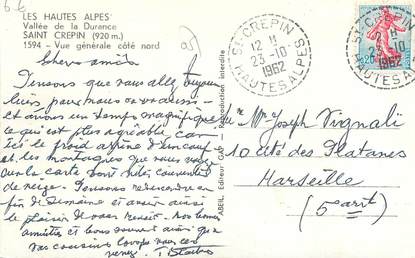 LES HAUTES ALPES
Vallée de la Durance
SAINT CREPIN (920 m.)
1594 - Vue générale côté nord
Chers amis
Pensons que vous allez toujours
bien, pour nous ça va
et avons un temps magnifique
ce qui est plus agréable
le froid arrive
et les montagnes que vous voyez
sur la carte sont couvertes
de neige. Pensons redescendre en
fin de semaine et avoir ainsi
le plaisir de vous revoir. Nos bonnes
amitiés et bons souvenirs ainsi que
vos cousins
venez.
ABEIL, Editeur GAP - Reproduction interdite
ST CREPIN
12 H
23-10
1962
HAUTES ALPES
ST CREPIN
12 H
23-10
1962
HAUTES ALPES
Mr Joseph Vignali
10 cité des Platanes
Marseille
(5 arrt)